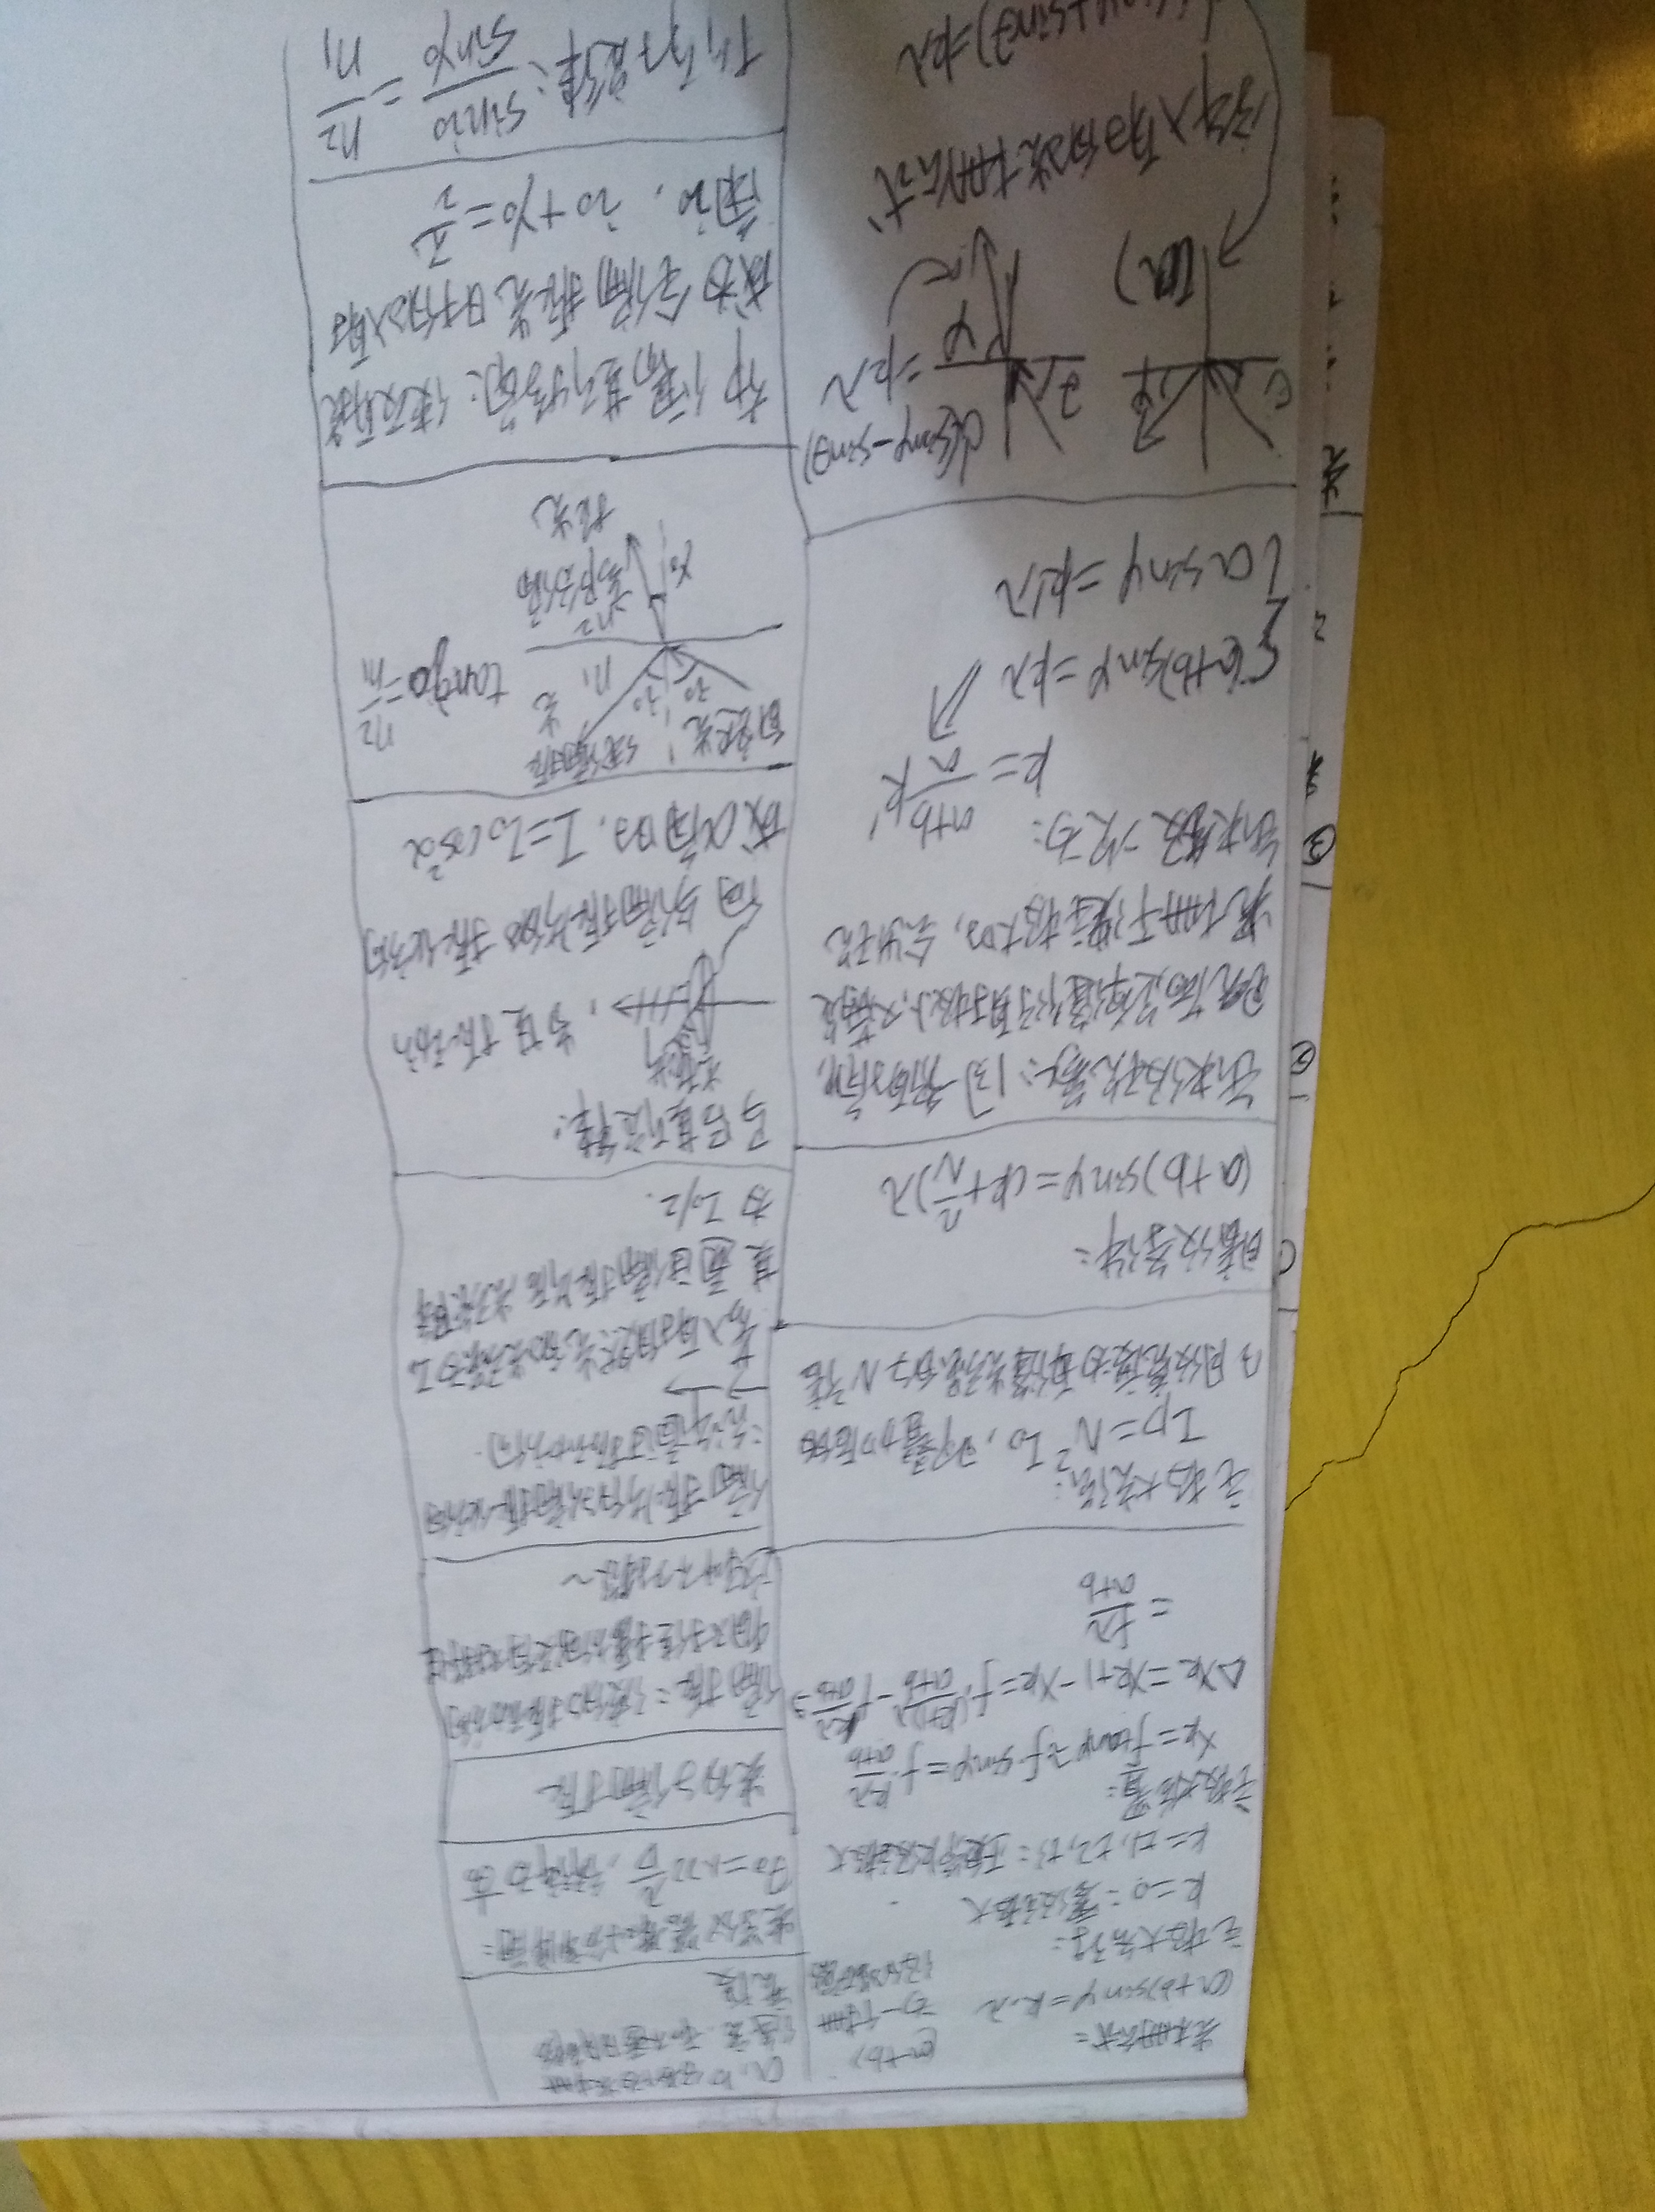 光栅公式:
(a+b)sinφ=k·λ
(a+b)
为一个栅
主极大条件:
k=0:零级主极大
k=±1,±2,±3:正负第k级主极大
主极大位置:
x_k=f tanφ≈f·sinφ=f·kλ/(a+b)
Δx_k=x_{k+1}-x_k=f·(k+1)λ/(a+b)-f·kλ/(a+b)⇒
=fλ/(a+b)
主极大光强:
I_p=N²I_0,即叠加后的
明纹亮度为单缝光强的N²倍
暗纹条件:
(a+b)sinφ=(k+n/N)λ
缺级现象:同一衍射角φ,
既满足单缝衍射极小,又满足
光栅干涉主极大时,会出现
缺级 次为:
k=(a+b)/a k'
{(a+b)sinφ=kλ
asinφ=k'λ
θ φ
(a)
θ φ
d(sinφ-sinθ)
=kλ
斜入射的光栅公式
d(sinφ+sinθ)=kλ
a,b分别为
缝宽,和不透明部分
宽度
光学仪器最小分辨角:
θ_0=1.22λ/D,分辨率为1/θ_0
光的偏振
偏振:波的振动方向
相对于传播方向没有对称性
这叫不对称~
偏振片的偏振化方向
:允许通过振动方向.
若入射自然光的光强为I_0
其通过偏振片后光强降
为I_0/2.
马吕斯定律:
偏振片
,当其振动方
向与偏振片的振化方向
成α角时,I=I_0cos²α
自然光 线偏振
光
i_0 i_0
n_1
tan i_0=n_2/n_1
n_2
γ_0 部分偏
振光
布儒斯特角:使反射光
成为全偏振光时的入射
角i_0, i_0+γ_0=π/2
折射定律:sin i_0/sin γ_0=n_2/n_1